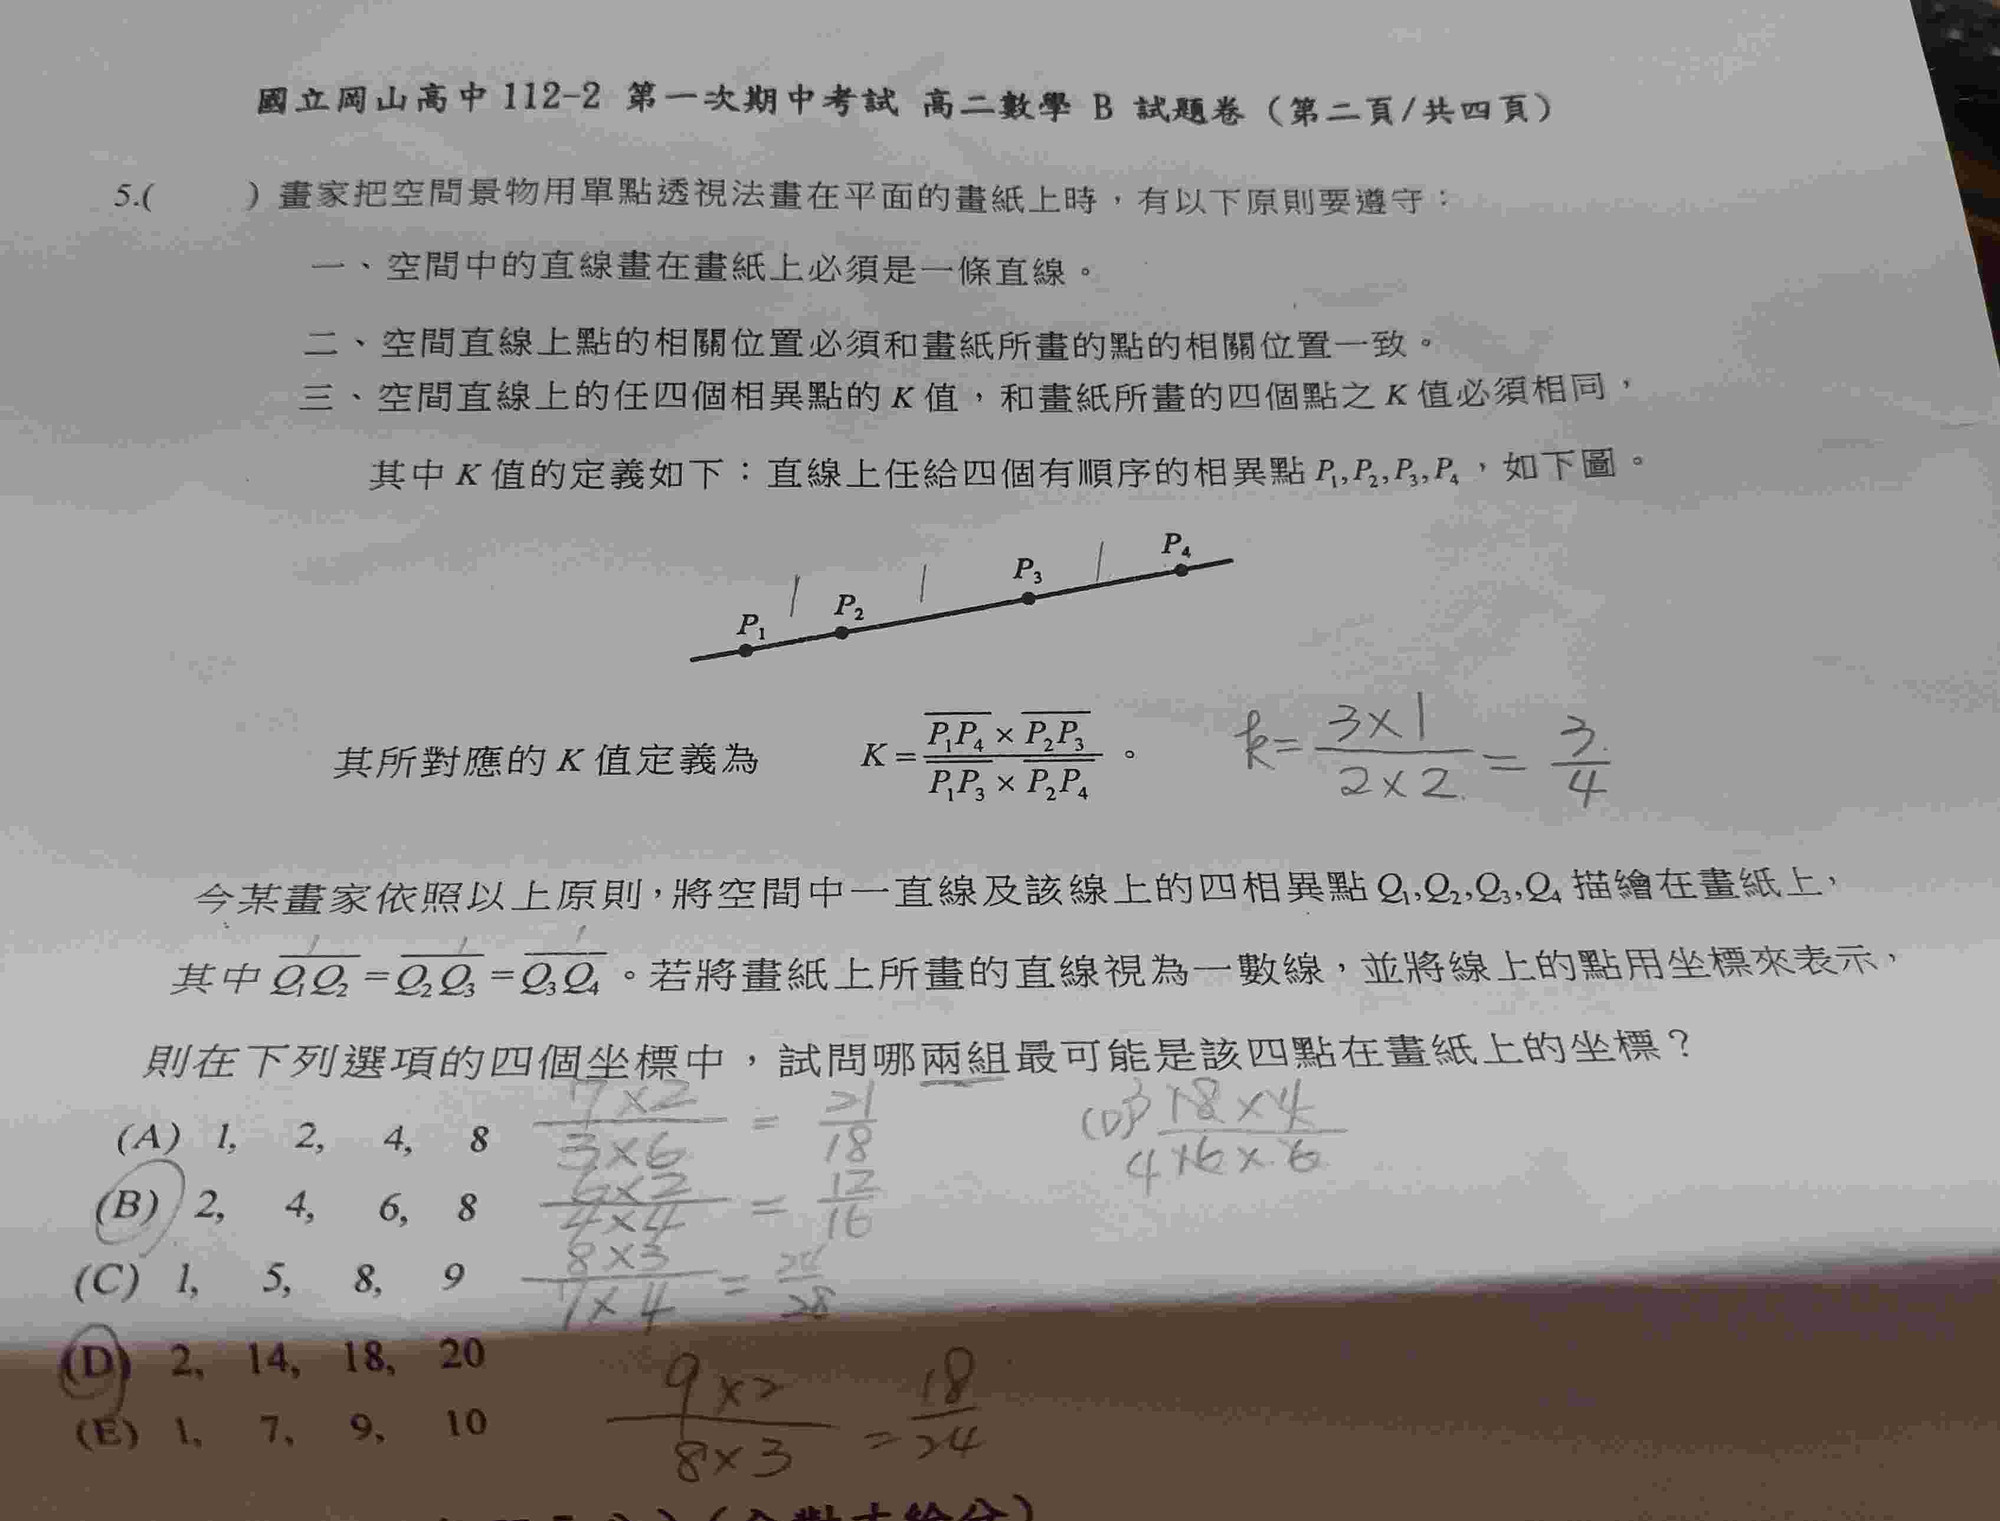 國立岡山高中 112-2 第一次期中考試 高二數學 B 試題卷（第二頁/共四頁）
5.(　　) 畫家把空間景物用單點透視法畫在平面的畫紙上時，有以下原則要遵守：
一、空間中的直線畫在畫紙上必須是一條直線。
二、空間直線上點的相關位置必須和畫紙所畫的點的相關位置一致。
三、空間直線上的任四個相異點的 K 值，和畫紙所畫的四個點之 K 值必須相同，
其中 K 值的定義如下：直線上任給四個有順序的相異點 P₁, P₂, P₃, P₄，如下圖。
P₁ P₂ P₃ P₄
其所對應的 K 值定義為 K = (P₁P₄ × P₂P₃) / (P₁P₃ × P₂P₄)。 k = (3×1)/(2×2) = 3/4
今某畫家依照以上原則，將空間中一直線及該線上的四相異點 Q₁,Q₂,Q₃,Q₄ 描繪在畫紙上，
其中 Q₁Q₂ = Q₂Q₃ = Q₃Q₄。若將畫紙上所畫的直線視為一數線，並將線上的點用坐標來表示，
則在下列選項的四個坐標中，試問哪兩組最可能是該四點在畫紙上的坐標？
(A) 1, 2, 4, 8 (7×2)/(3×6) = 21/18
(D) (18×4)/(4×6×6)
(B) 2, 4, 6, 8 (6×2)/(4×4) = 12/16
(C) 1, 5, 8, 9 (8×3)/(7×4) = 24/28
(D) 2, 14, 18, 20
(E) 1, 7, 9, 10 (9×2)/(8×3) = 18/24